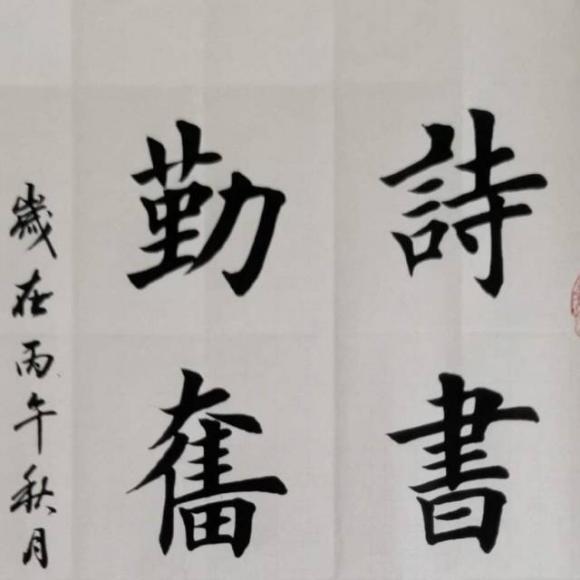 詩書
勤奮
歲在丙午秋月